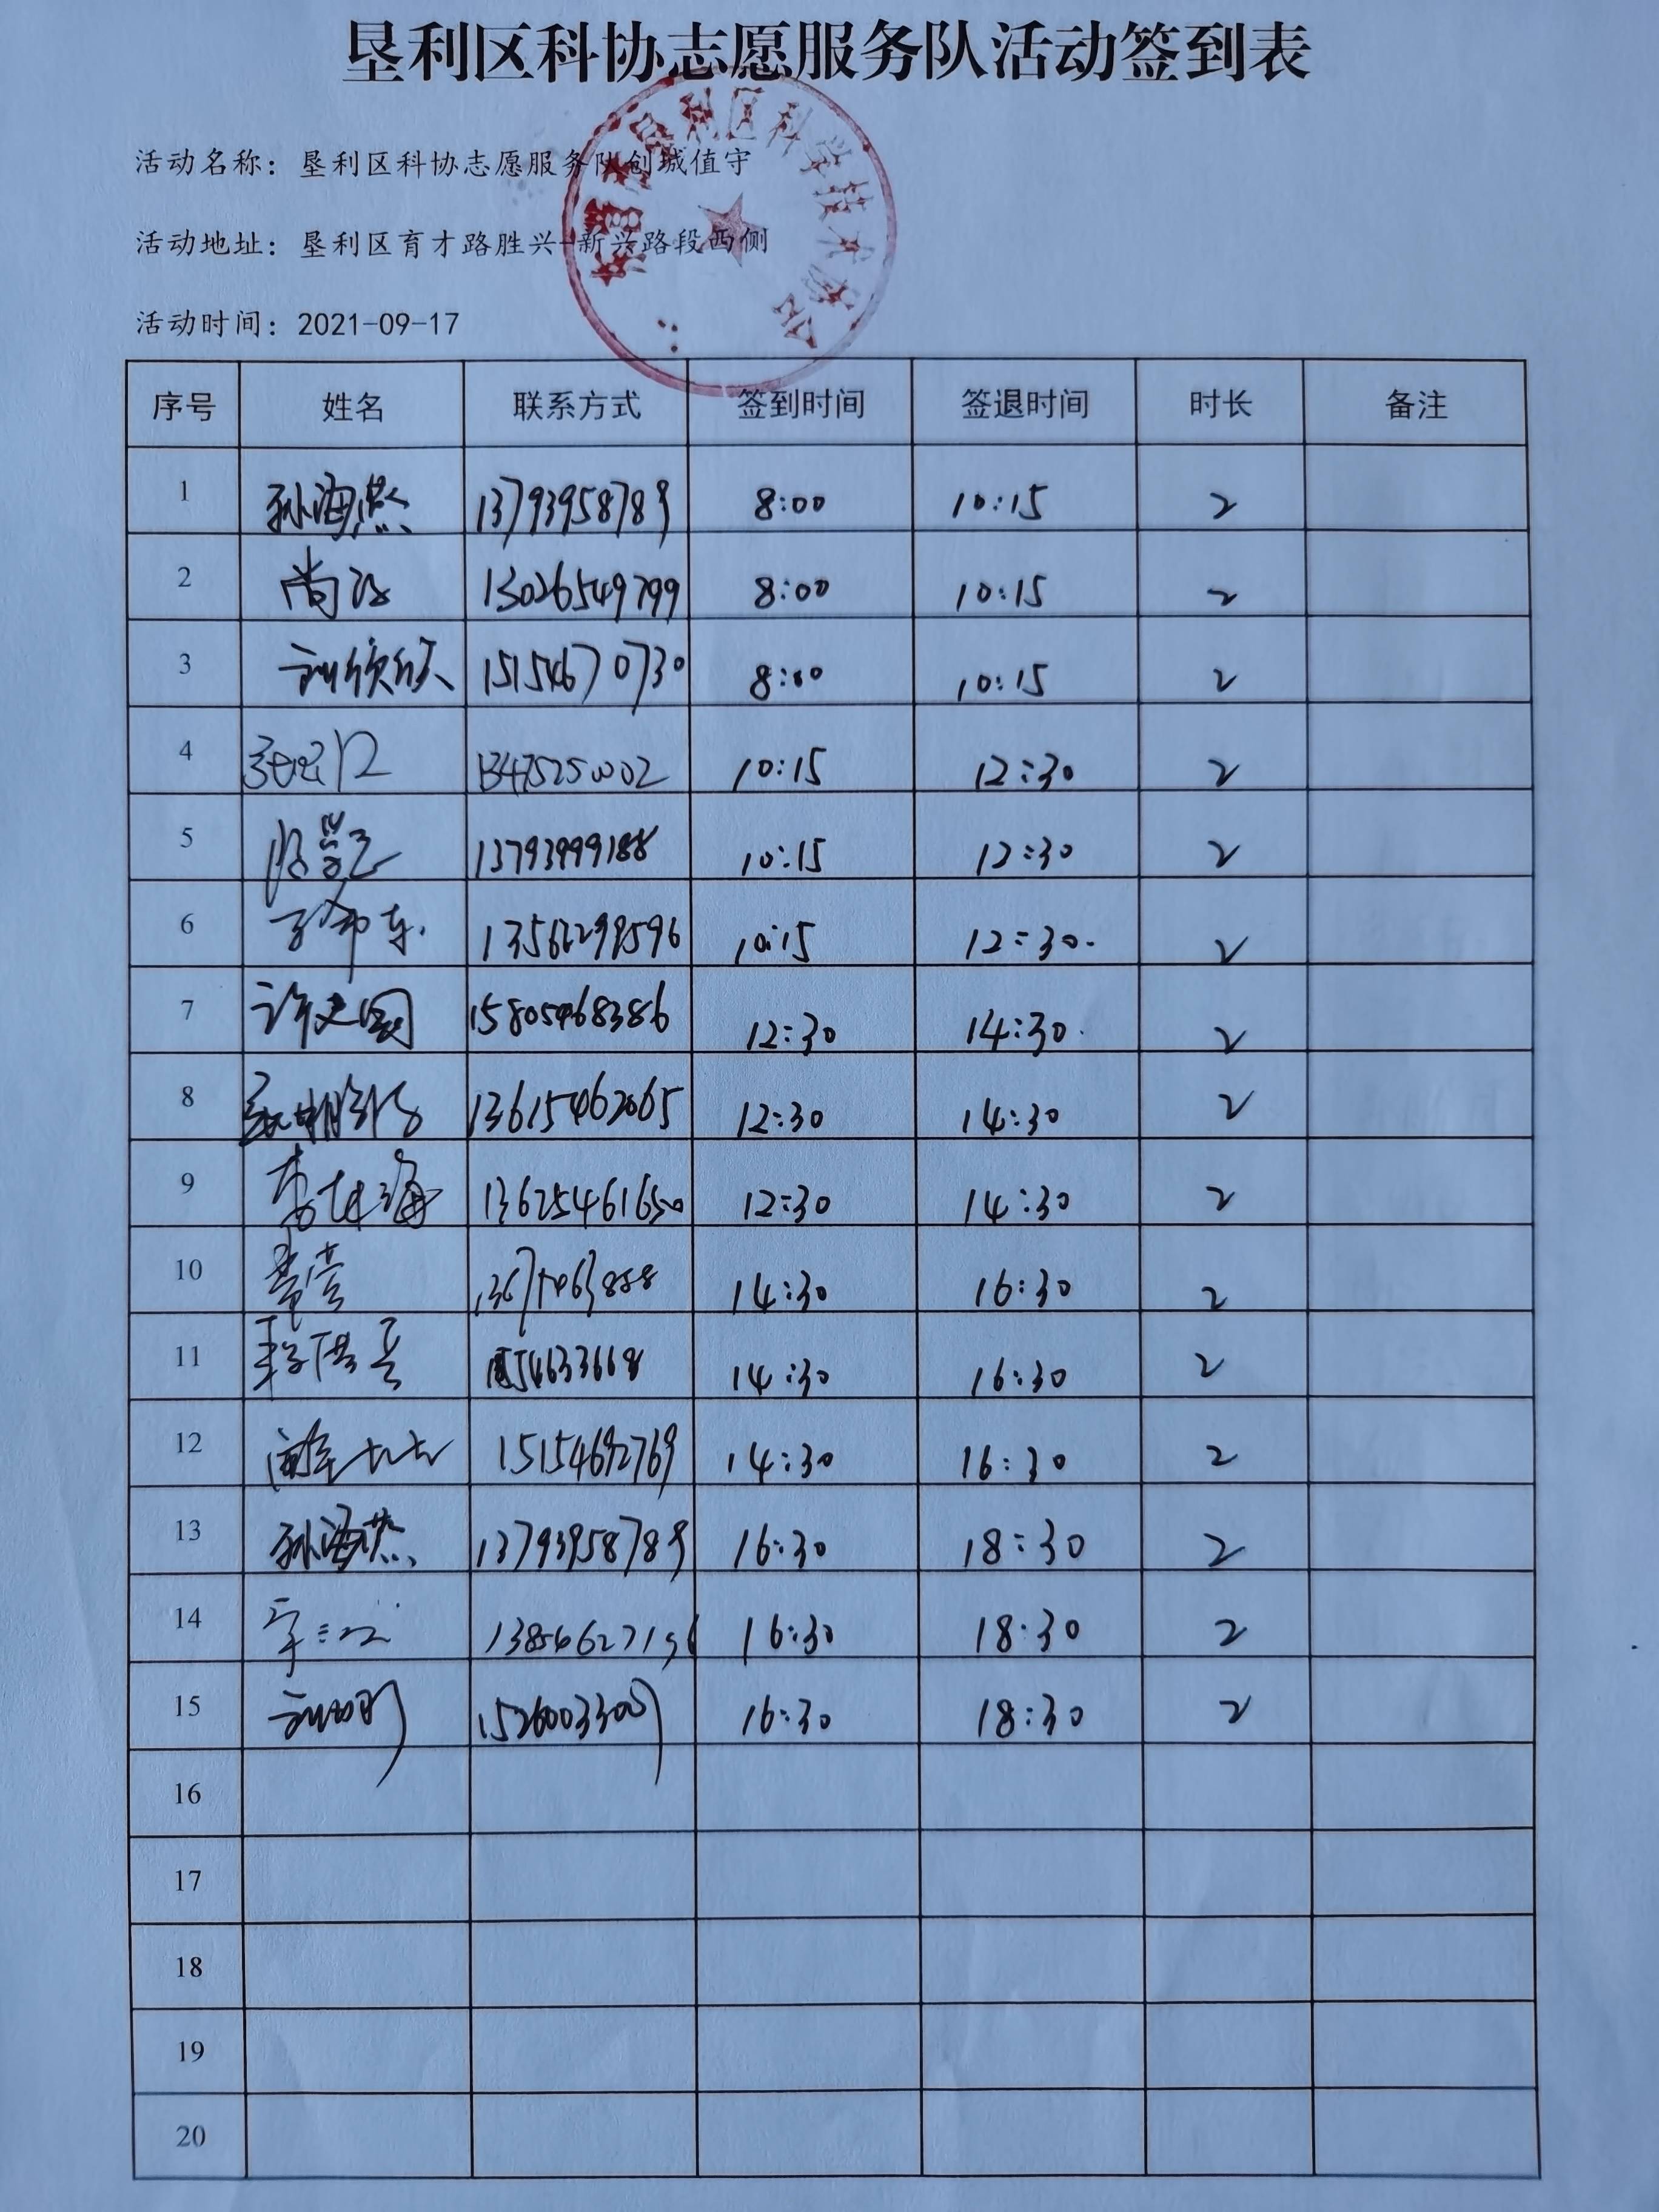 垦利区科协志愿服务队活动签到表
活动名称：垦利区科协志愿服务队创城值守
活动地址：垦利区育才路胜兴-新兴路段西侧
活动时间：2021-09-17
序号 姓名 联系方式 签到时间 签退时间 时长 备注
1 孙海燕 13793958789 8:00 10:15 2
2 尚 13026549799 8:00 10:15 2
3 刘欣欣 15154670730 8:00 10:15 2
4 13475250002 10:15 12:30 2
5 13793999188 10:15 12:30 2
6 10:15 12:30 2
7 许文国 15805468386 12:30 14:30 2
8 13615462065 12:30 14:30 2
9 李林海 13625461650 12:30 14:30 2
10 14:30 16:30 2
11 14:30 16:30 2
12 15154692769 14:30 16:30 2
13 孙海燕 13793958789 16:30 18:30 2
14 16:30 18:30 2
15 16:30 18:30 2
16
17
18
19
20